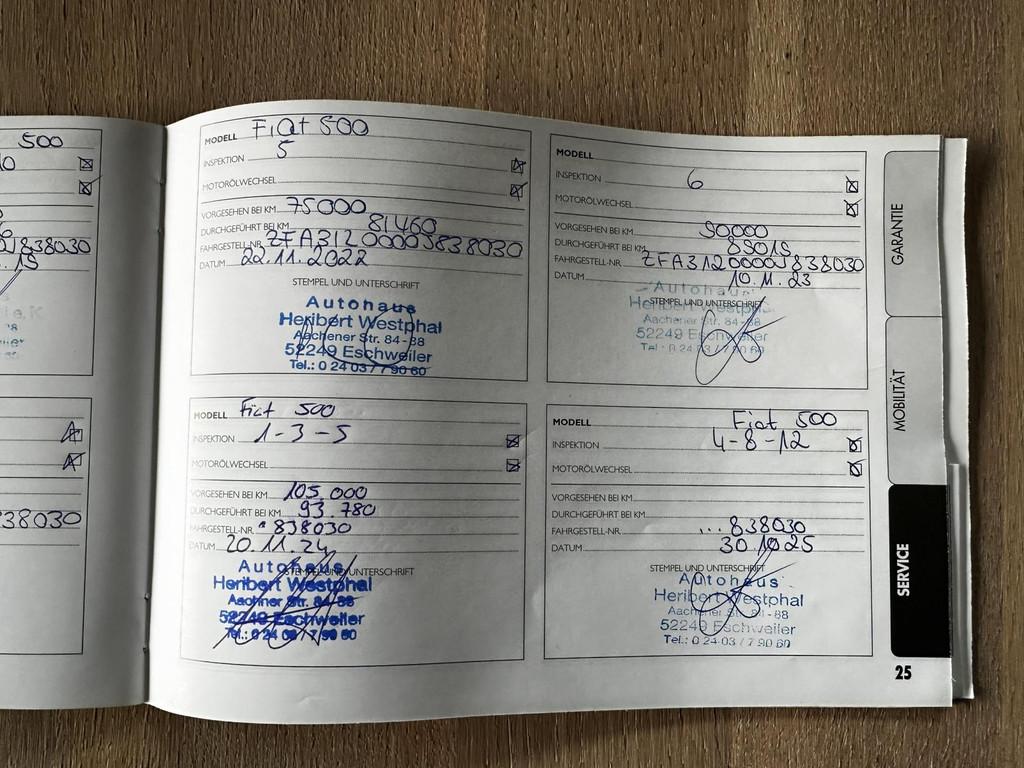 500
838030
838030
MODELL Fiat 500
INSPEKTION 5
MOTORÖLWECHSEL
VORGESEHEN BEI KM 75000
DURCHGEFÜHRT BEI KM 81460
FAHRGESTELL-NR. ZFA3120000J838030
DATUM 22.11.2022
STEMPEL UND UNTERSCHRIFT
Autohaus
Heribert Westphal
Aachener Str. 84-88
52249 Eschweiler
Tel.: 0 24 03 / 7 90 60
MODELL
INSPEKTION 6
MOTORÖLWECHSEL
VORGESEHEN BEI KM 90000
DURCHGEFÜHRT BEI KM
FAHRGESTELL-NR. ZFA3120000J838030
DATUM 10.11.23
STEMPEL UND UNTERSCHRIFT
Autohaus
Heribert Westphal
Aachener Str. 84-88
52249 Eschweiler
Tel.: 0 24 03 / 7 90 60
MODELL Fiat 500
INSPEKTION 1-3-5
MOTORÖLWECHSEL
VORGESEHEN BEI KM 105.000
DURCHGEFÜHRT BEI KM 93.780
FAHRGESTELL-NR. 838030
DATUM 20.11.24
STEMPEL UND UNTERSCHRIFT
Autohaus
Heribert Westphal
Aachener Str. 84-88
52249 Eschweiler
Tel.: 0 24 03 / 7 90 60
MODELL Fiat 500
INSPEKTION 4-8-12
MOTORÖLWECHSEL
VORGESEHEN BEI KM
DURCHGEFÜHRT BEI KM
FAHRGESTELL-NR. ...838030
DATUM 30.10.25
STEMPEL UND UNTERSCHRIFT
Autohaus
Heribert Westphal
Aachener Str. 84-88
52249 Eschweiler
Tel.: 0 24 03 / 7 90 60
GARANTIE
MOBILITÄT
SERVICE
25